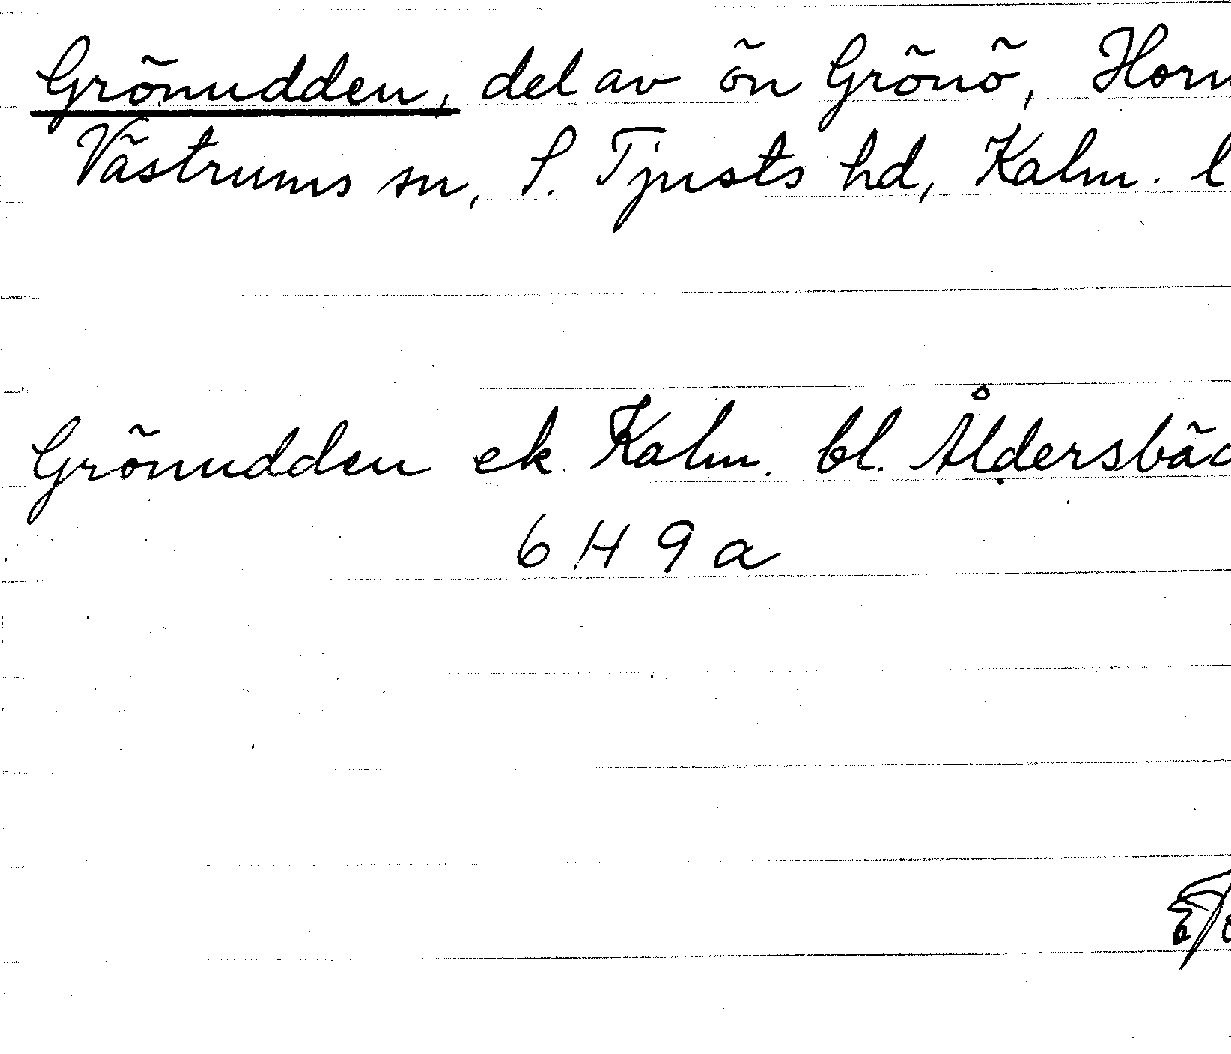 Grönudden, del av ön Grönö, Horn
Västrums sn, S. Tjusts hd, Kalm. l
Grönudden ek. Kalm. bl. Åldersbäc
6 H 9 a